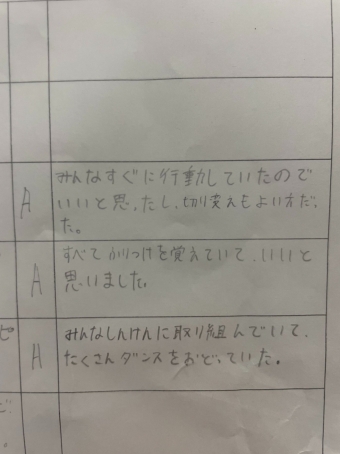 A
みんなすぐに行動していたので
いいと思ったし、切り変えもよい方だっ
た。
A
すべてふりつけを覚えていて、いいと
思いました。
ピ
A
みんなしんけんに取り組んでいて、
たくさんダンスをおどっていた。